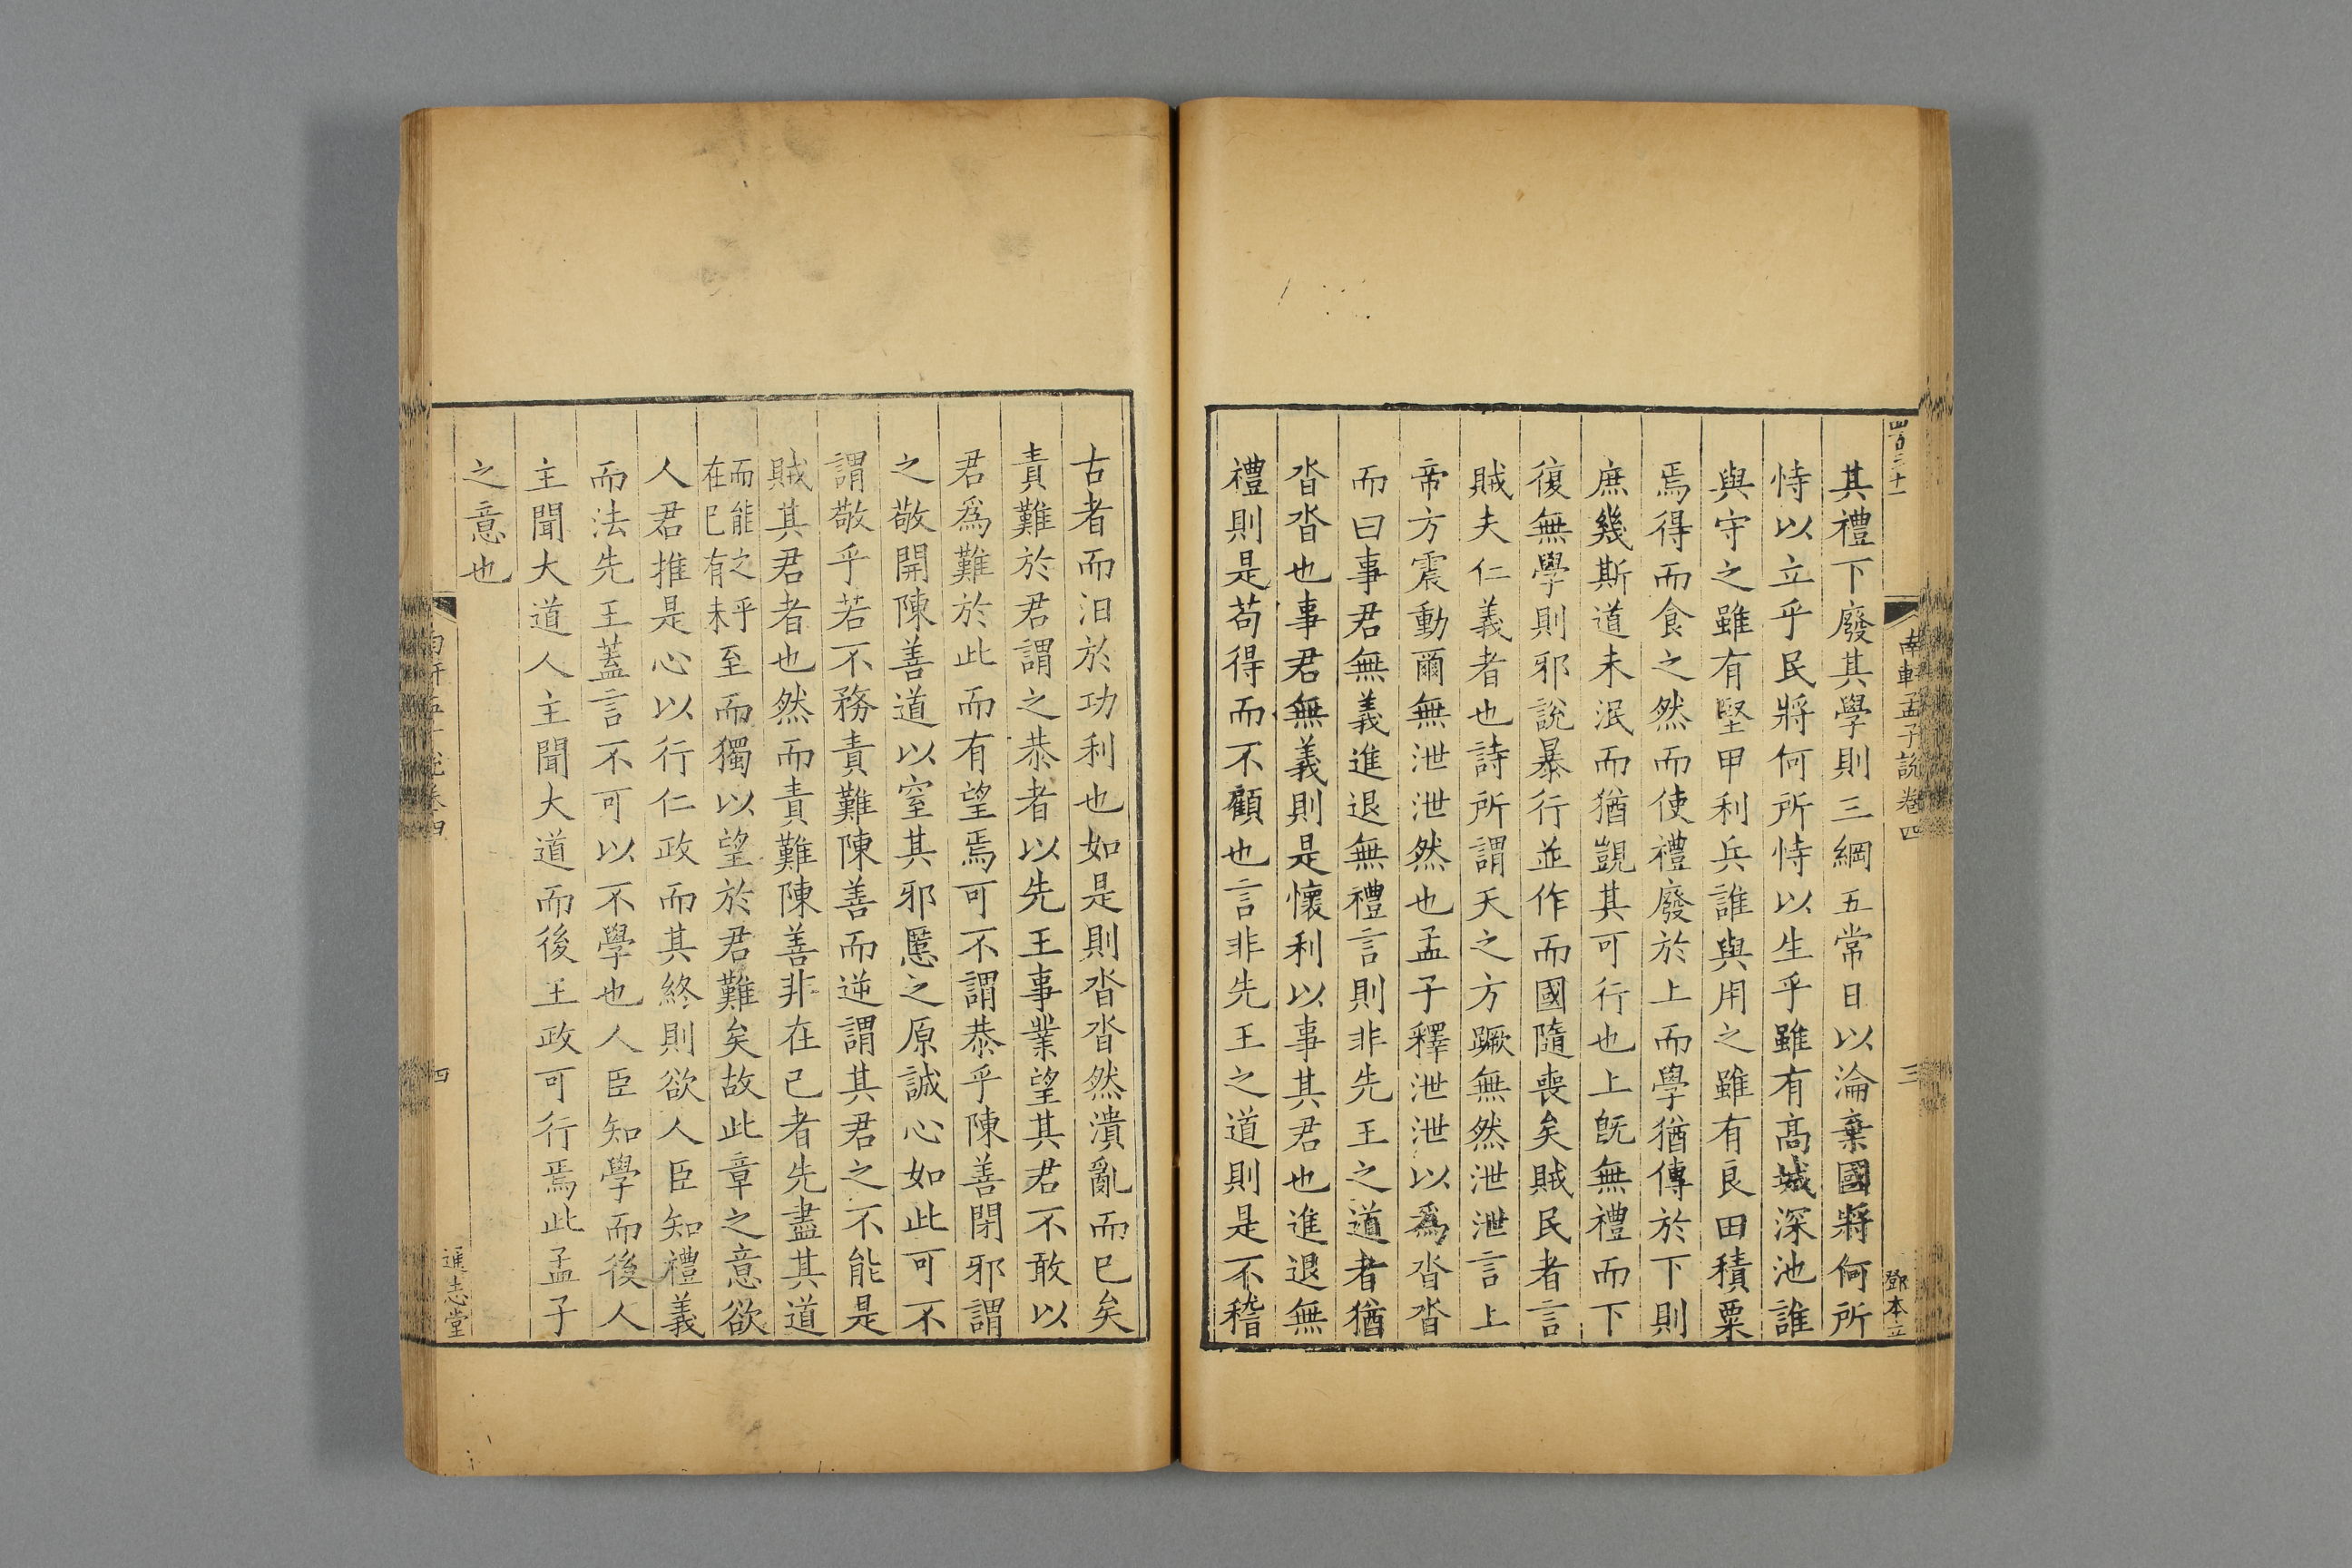 四百二十一
南軒孟子說卷四
三
鄧本立
其禮下廢其學則三綱五常日以淪棄國將何所
恃以立乎民將何所恃以生乎雖有高城深池誰
與守之雖有堅甲利兵誰與用之雖有良田積粟
焉得而食之然而使禮廢於上而學猶傳於下則
庶幾斯道未泯而猶覬其可行也上旣無禮而下
復無學則邪說暴行並作而國隨喪矣賊民者言
賊夫仁義者也詩所謂天之方蹶無然泄泄言上
帝方震動爾無泄泄然也孟子釋泄泄以爲沓沓
而曰事君無義進退無禮言則非先王之道者猶
沓沓也事君無義則是懷利以事其君也進退無
禮則是苟得而不顧也言非先王之道則是不稽
古者而汨於功利也如是則沓沓然潰亂而已矣
責難於君謂之恭者以先王事業望其君不敢以
君爲難於此而有望焉可不謂恭乎陳善閉邪謂
之敬開陳善道以窒其邪慝之原誠心如此可不
謂敬乎若不務責難陳善而逆謂其君之不能是
賊其君者也然而責難陳善非在己者先盡其道
而能之乎
在已有未
至而獨以望於君難矣故此章之意欲
人君推是心以行仁政而其終則欲人臣知禮義
而法先王蓋言不可以不學也人臣知學而後人
主聞大道人主聞大道而後王政可行焉此孟子
之意也
四
進志堂